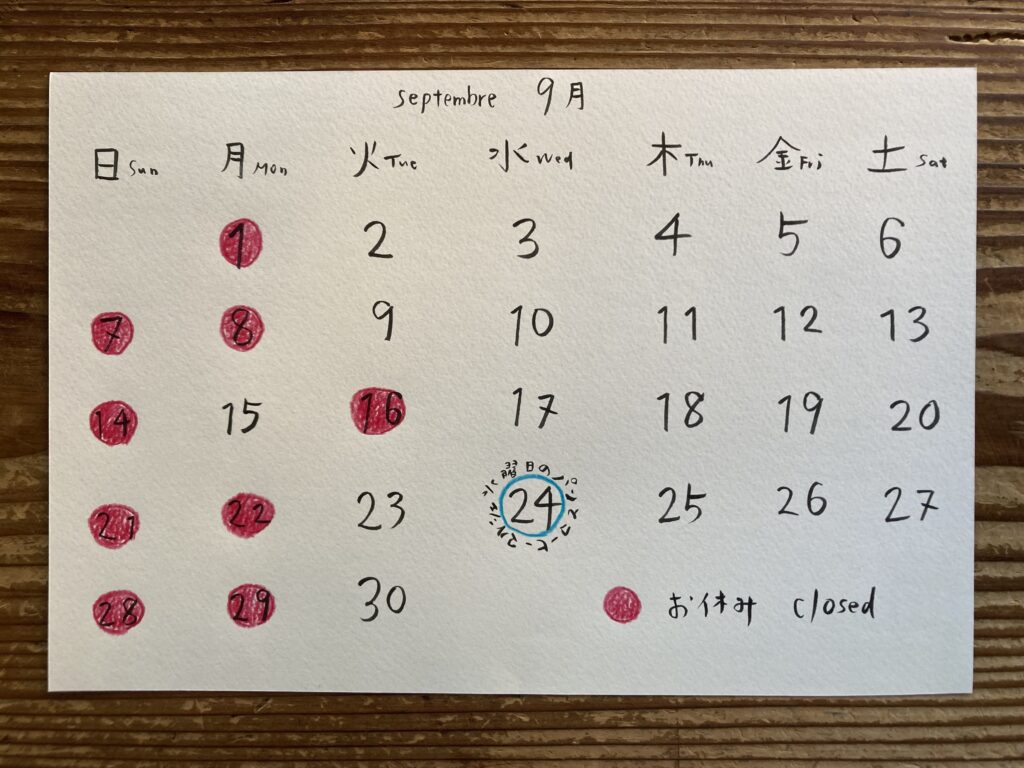 septembre 9月
日 Sun 月 Mon 火 Tue 水 Wed 木 Thu 金 Fri 土 Sat
1 2 3 4 5 6
7 8 9 10 11 12 13
14 15 16 17 18 19 20
水曜日のパンとコーヒーマルシェ
21 22 23 24 25 26 27
28 29 30
お休み closed